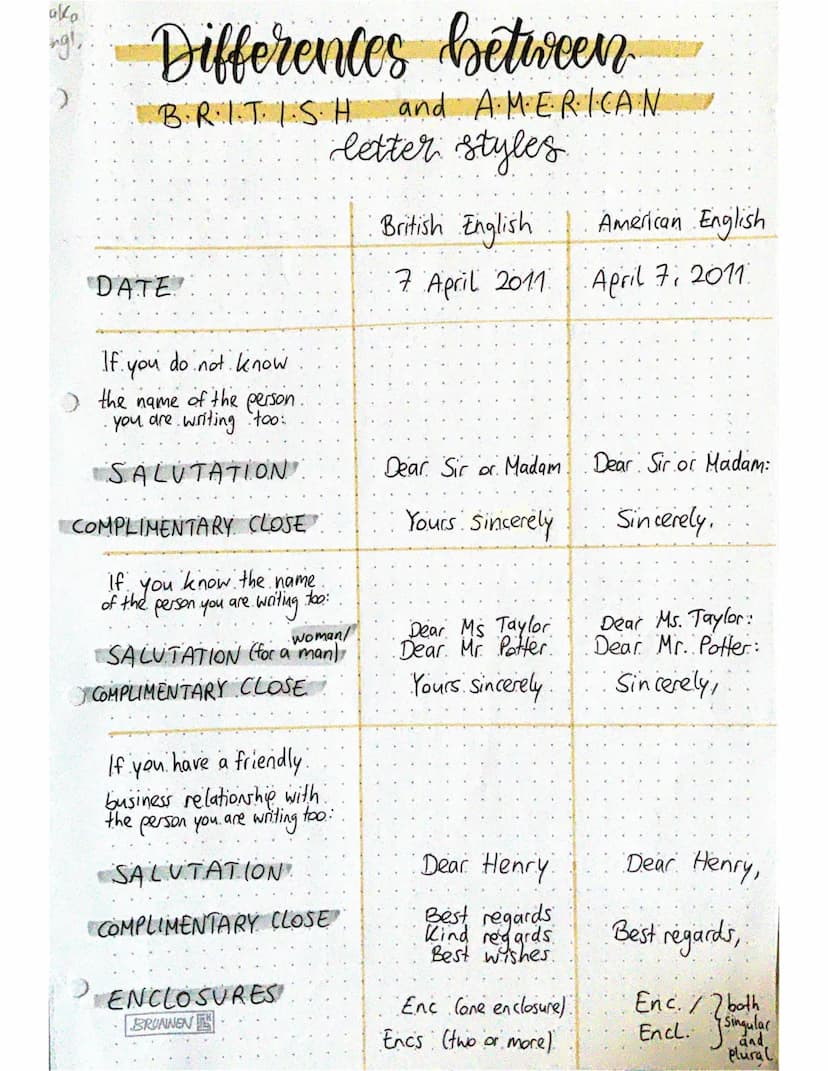 Differences between
B.R.I.T.I.S.H and A.M.E.R.I.C.A.N
letter styles
British English American English
DATE 7 April 2011 April 7, 2011
If you do not know
the name of the person
you are writing too:
SALUTATION Dear Sir or Madam Dear Sir or Madam:
COMPLIMENTARY CLOSE Yours sincerely Sincerely,
If you know the name
of the person you are writing too:
woman/
SALUTATION (for a man) Dear Ms Taylor Dear Ms. Taylor:
Dear Mr Potter Dear Mr. Potter:
COMPLIMENTARY CLOSE Yours sincerely Sincerely,
If you have a friendly
business relationship with
the person you are writing too:
SALUTATION Dear Henry Dear Henry,
COMPLIMENTARY CLOSE Best regards Best regards,
Kind regards
Best wishes
ENCLOSURES Enc (one enclosure) Enc. / both
BRUNNEN Encs (two or more) Encl. singular
and
plural